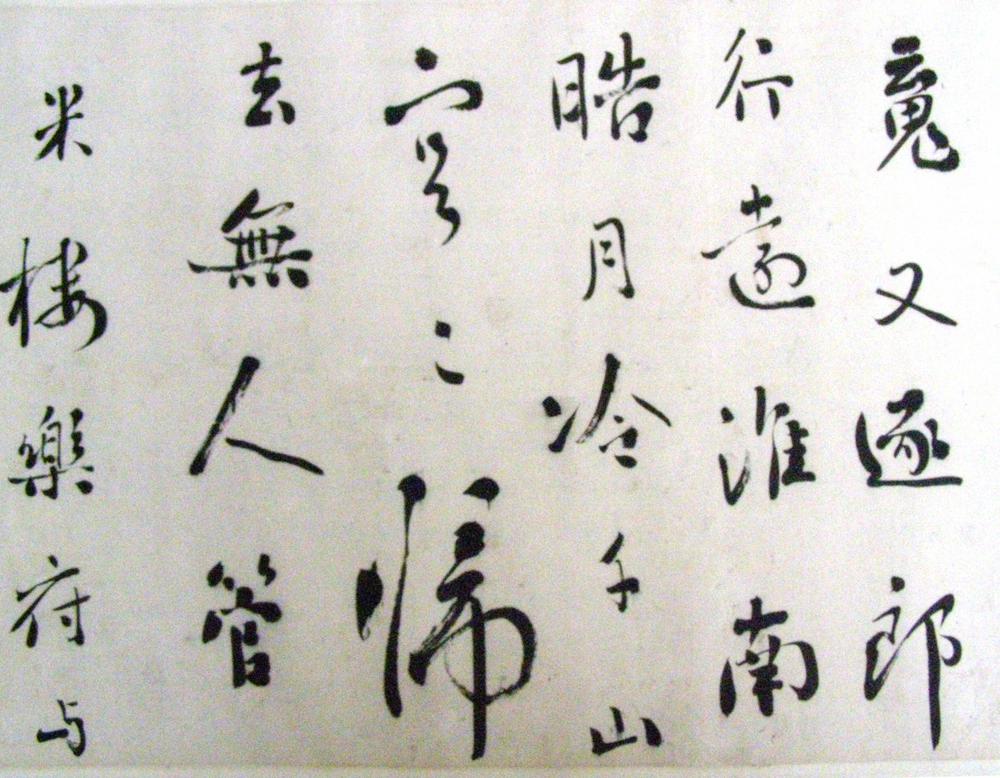 䰟又逐郎
行遠淮南
晧月冷千山
冥〻帰
去無人管
米楼樂府与